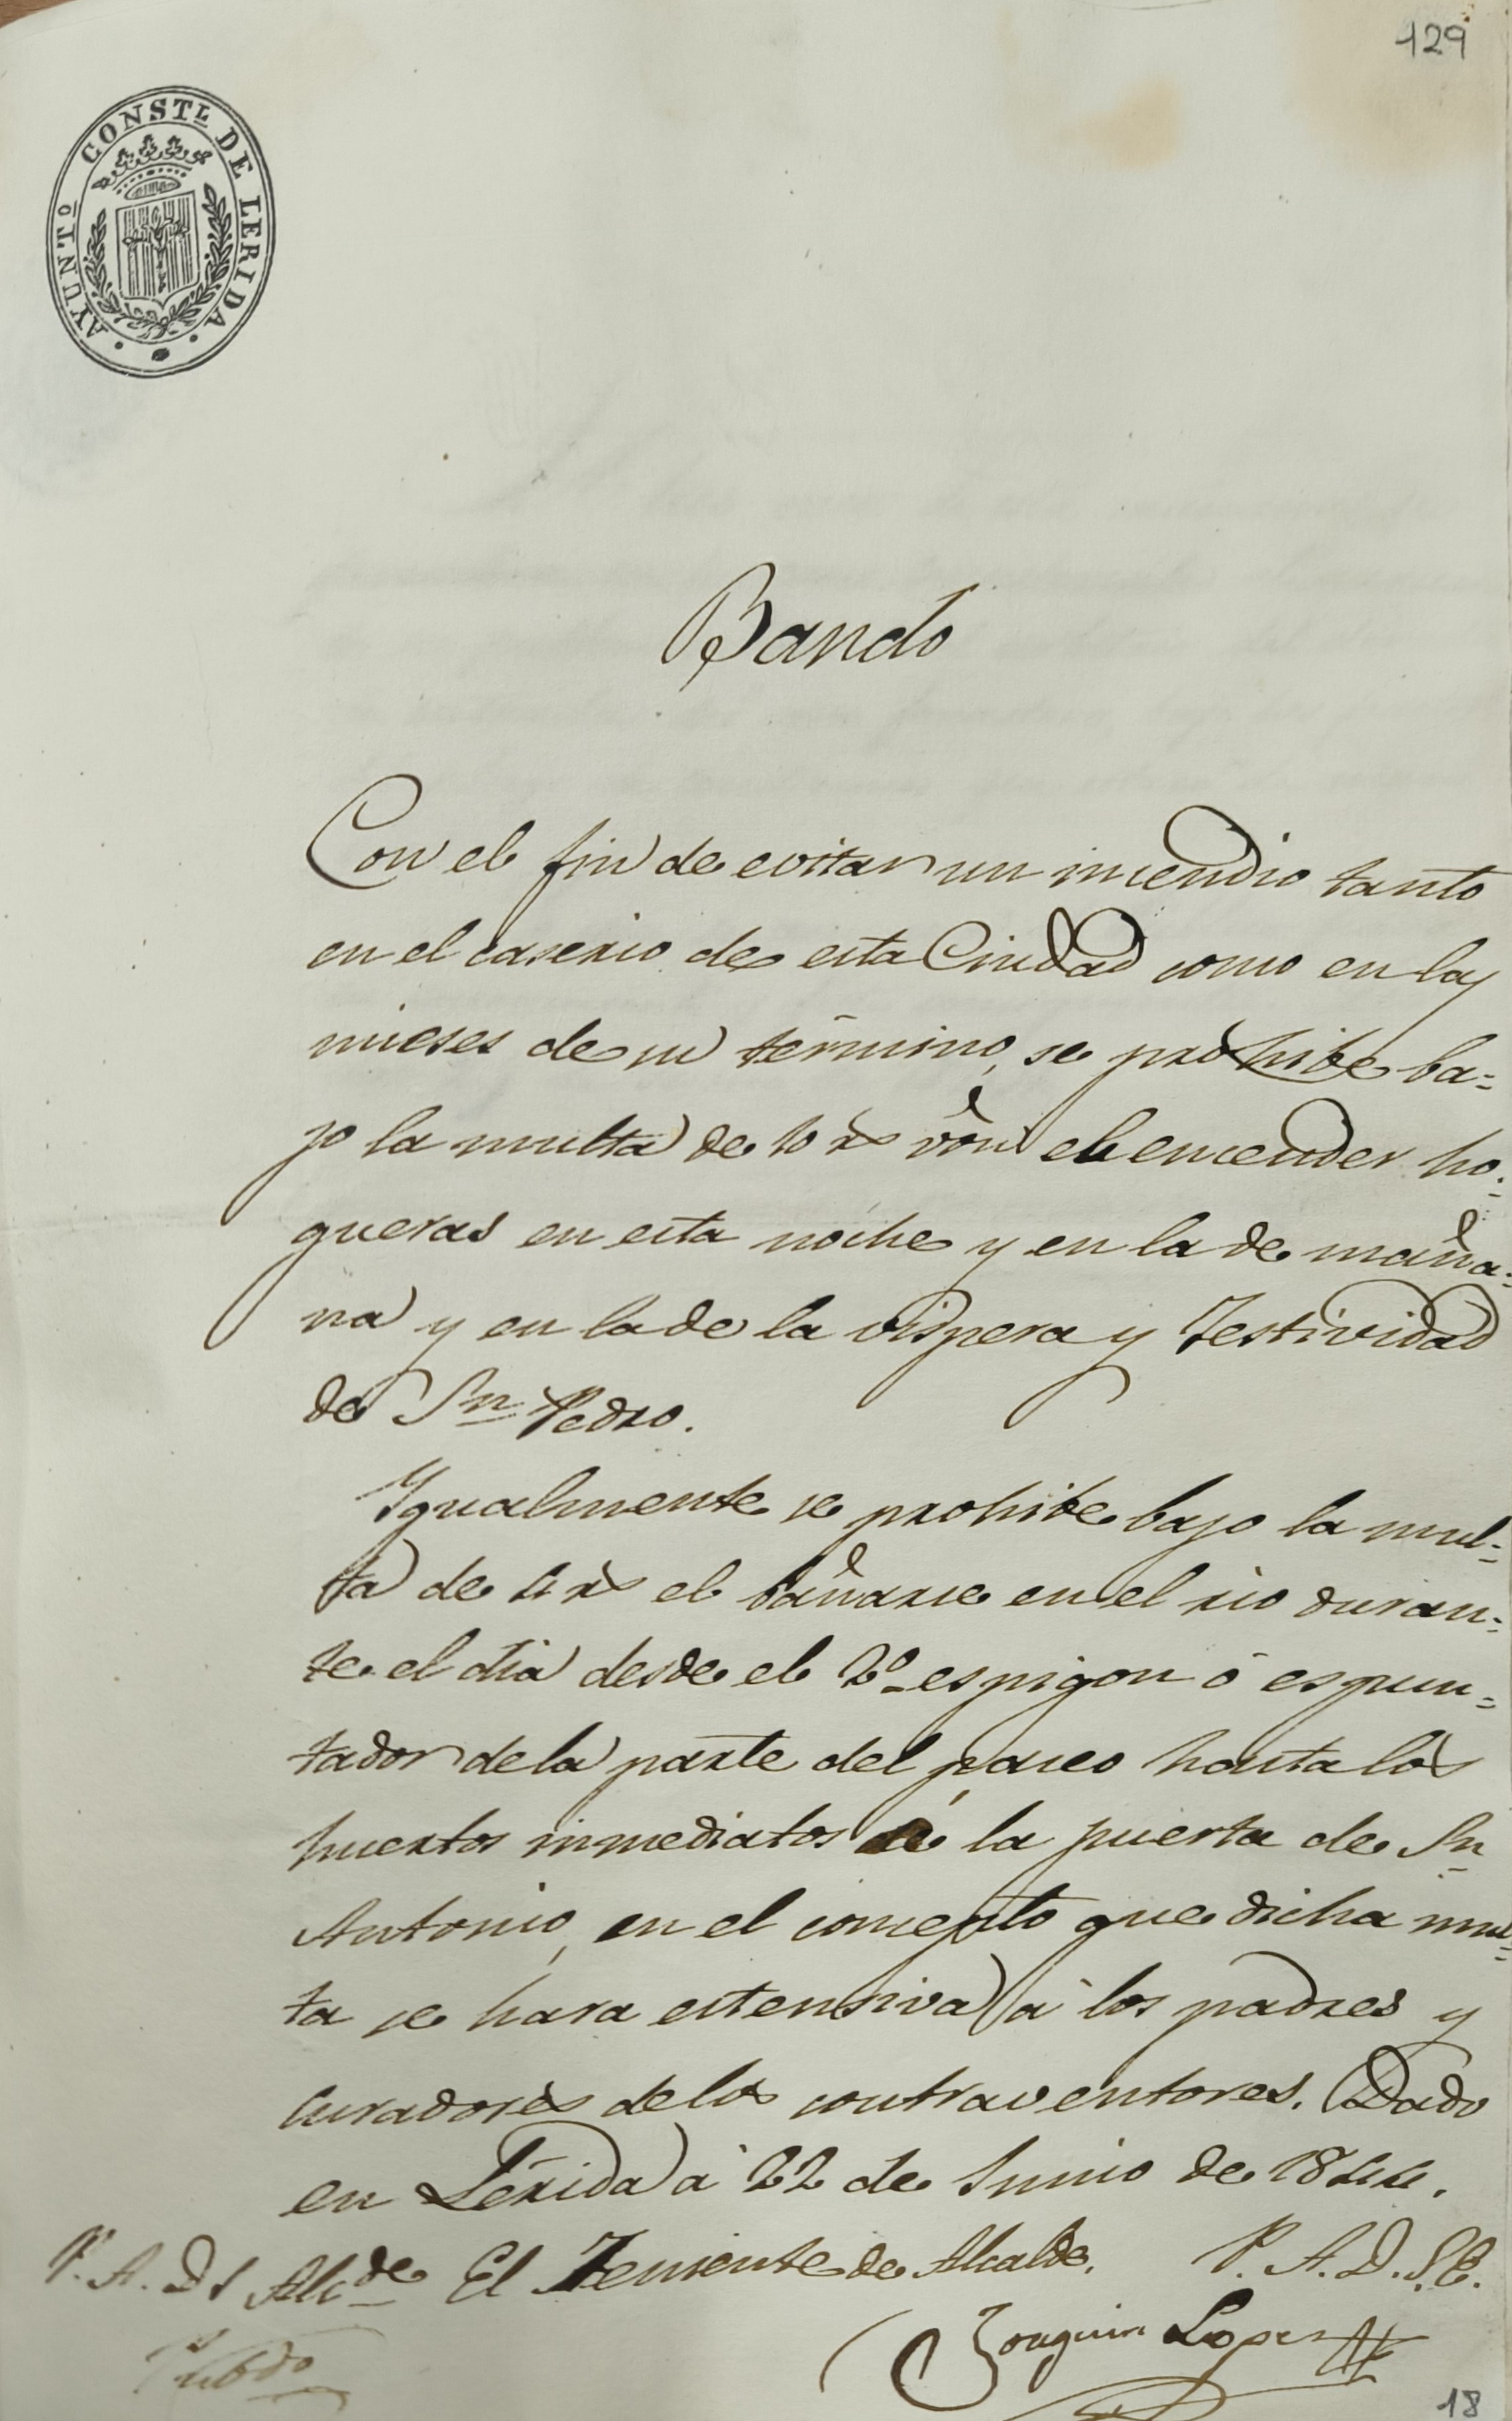 129
AYUNTº CONSTL DE LERIDA
Bando
Con el fin de evitar un incendio tanto
en el caserio de esta Ciudad como en las
mieses de su término, se prohibe ba=
jo la multa de 10 rs von el encender ho=
gueras en esta noche y en la de maña=
na y en la de la vispera y Festividad
de Sn Pedro.
Igualmente se prohibe bajo la mul=
ta de 4 rs el bañarse en el rio duran=
te el dia desde el 2º espigon ó espun=
tador de la parte del paseo hasta los
huertos inmediatos á la puerta de Sn
Antonio, en el concepto que dicha mul=
ta se hara estensiva á los padres y
curadores de los contraventores. Dado
en Lérida á 22 de Junio de 1844.
P. A. D S Alcde El Teniente de Alcalde. P. A. D. S. E.
Joaquin Lopez
Pubdo
18